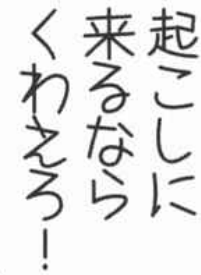 起こしに
来るなら
くわえろ！